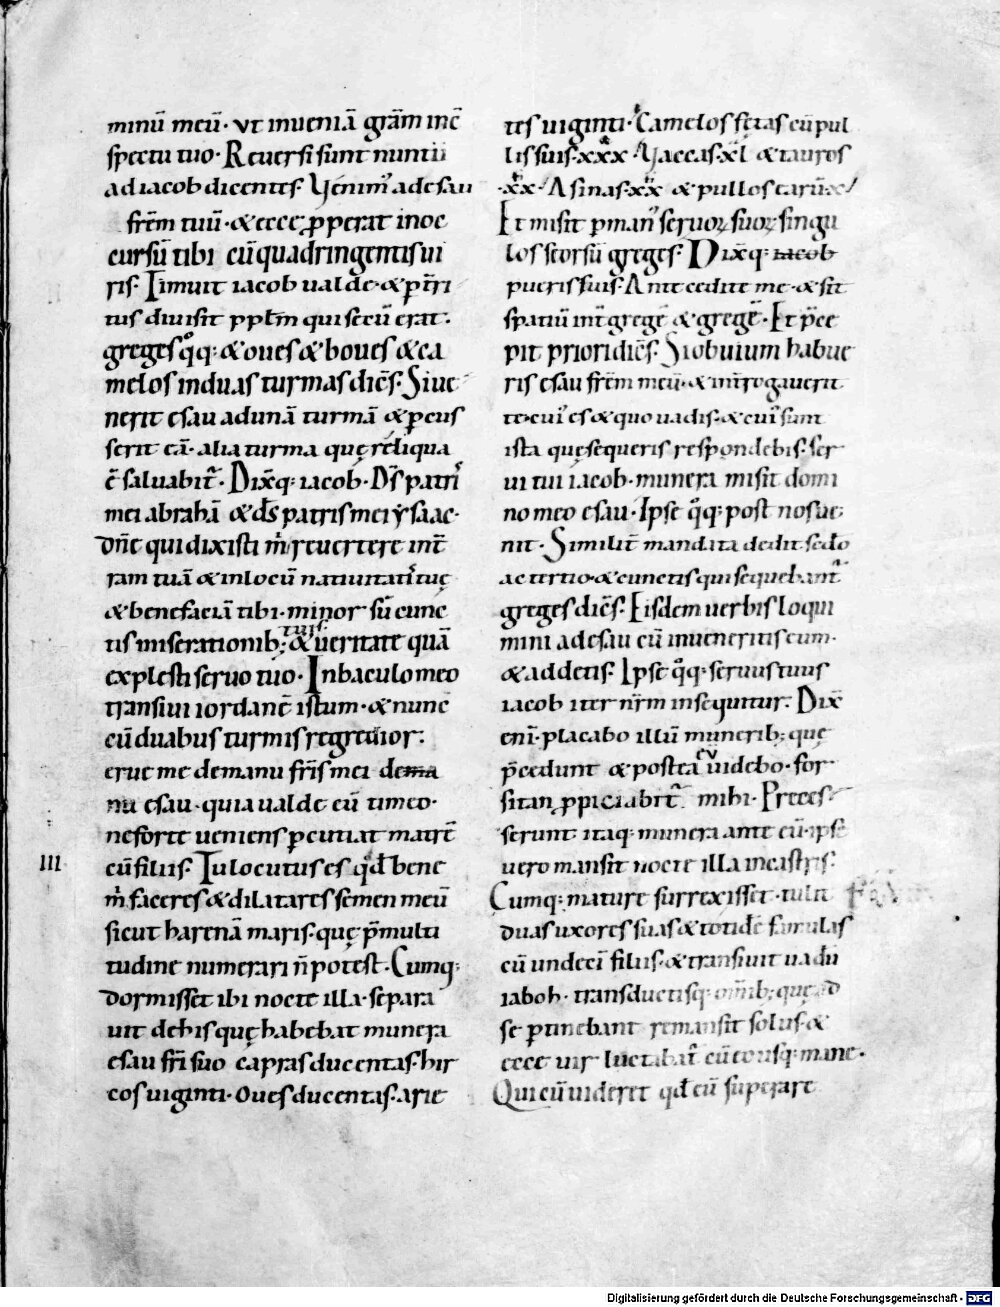 minū meū· ut inueniā grām inc̄
spectu tuo· Reuersi sunt nuntii
ad iacob dicentes· Venim᷒ ad esau
frēm tuū· & ecce ꝓperat in oc
cursū tibi cū quadringentis ui
ris· Timuit iacob ualde· & pt̄ri
tus diuisit pplm̄ qui secū erat·
greges qͦq; & oues & boues & ca
melos in duas turmas dic̄s· Si ue
nerit esau ad unā turmā & ꝑcus
serit eā· alia turma quę reliqua
ē saluabit᷑· Dixq̄; iacob· Ds̄ patris
mei abrahā & ds̄ patris mei ysaac·
Dn̄e qui dixisti m̄ reuertere in t̄
ram tuā & in locū natiuitatis tuę
& benefaciā tibi· minor sū cunc
tis miserationib; tuis· & ueritate quā
explesti seruo tuo· In baculo meo
transiui iordanē istum· & nunc
cū duabus turmis regredior·
erue me de manu fr̄is mei de ma
nu esau· quia ualde eū timeo·
ne forte ueniens ꝑcutiat matrē
cū filiis· Tu locutus es qd̄ bene
m̄ faceres & dilatares semen meū
sicut harenā maris· quę p̄ multi
tudine numerari n̄ potest· Cumq;
dormisset ibi nocte illa· separa
uit de his quę habebat munera
esau fr̄i suo capras ducentas· hir
cos uiginti· Oues ducentas· arie
III
tes uiginti· Camelos fetas cū pul
lis suis· xxx· Vaccas· xl & tauros
·xx· Asinas· xx & pullos earū· x
Et misit ꝑ man᷒ seruoꝝ suoꝝ singu
los seorsū greges· Dixq̄; iacob
pueris suis· Antecedite me· & sit
spatiū int̄ gregē & gregē· Et p̄ce
pit priori dic̄s· Si obuium habue
ris esau frēm meū· & int̄rogauerit
te· cui᷒ es & quo uadis· & cui᷒ sunt
ista quę sequeris respondebis· ser
ui tui iacob· munera misit domi
no meo esau· Ipse qͦq; post nos ue
nit· Similit̄ mandata dedit scd̄o
ac tertio· & cunctis qui sequebant᷑
greges dic̄s· Eisdem uerbis loqui
mini ad esau cū inueneritis eum·
& addetis· Ipse qͦq; seruus tuus
iacob iter nr̄m insequitur· Dix̄
eni᷒· placabo illū munerib; quę
p̄cedunt & postea uidebo· for
sitan ꝓpiciabit᷑ mihi· Preces
serunt itaq; munera ante eū· ipse
uero mansit nocte illa in castris·
Cumq; mature surrexisset· tulit
duas uxores suas & totidē famulas
cū undecī filiis· & transiuit uadū
iaboh· transductisq; omīb; quę ad
se ꝑtinebant remansit solus· &
ecce uir luctabat᷑ cū eo usq; mane·
Qui cū uideret qd̄ eū superare
Digitalisierung gefördert durch die Deutsche Forschungsgemeinschaft - DFG